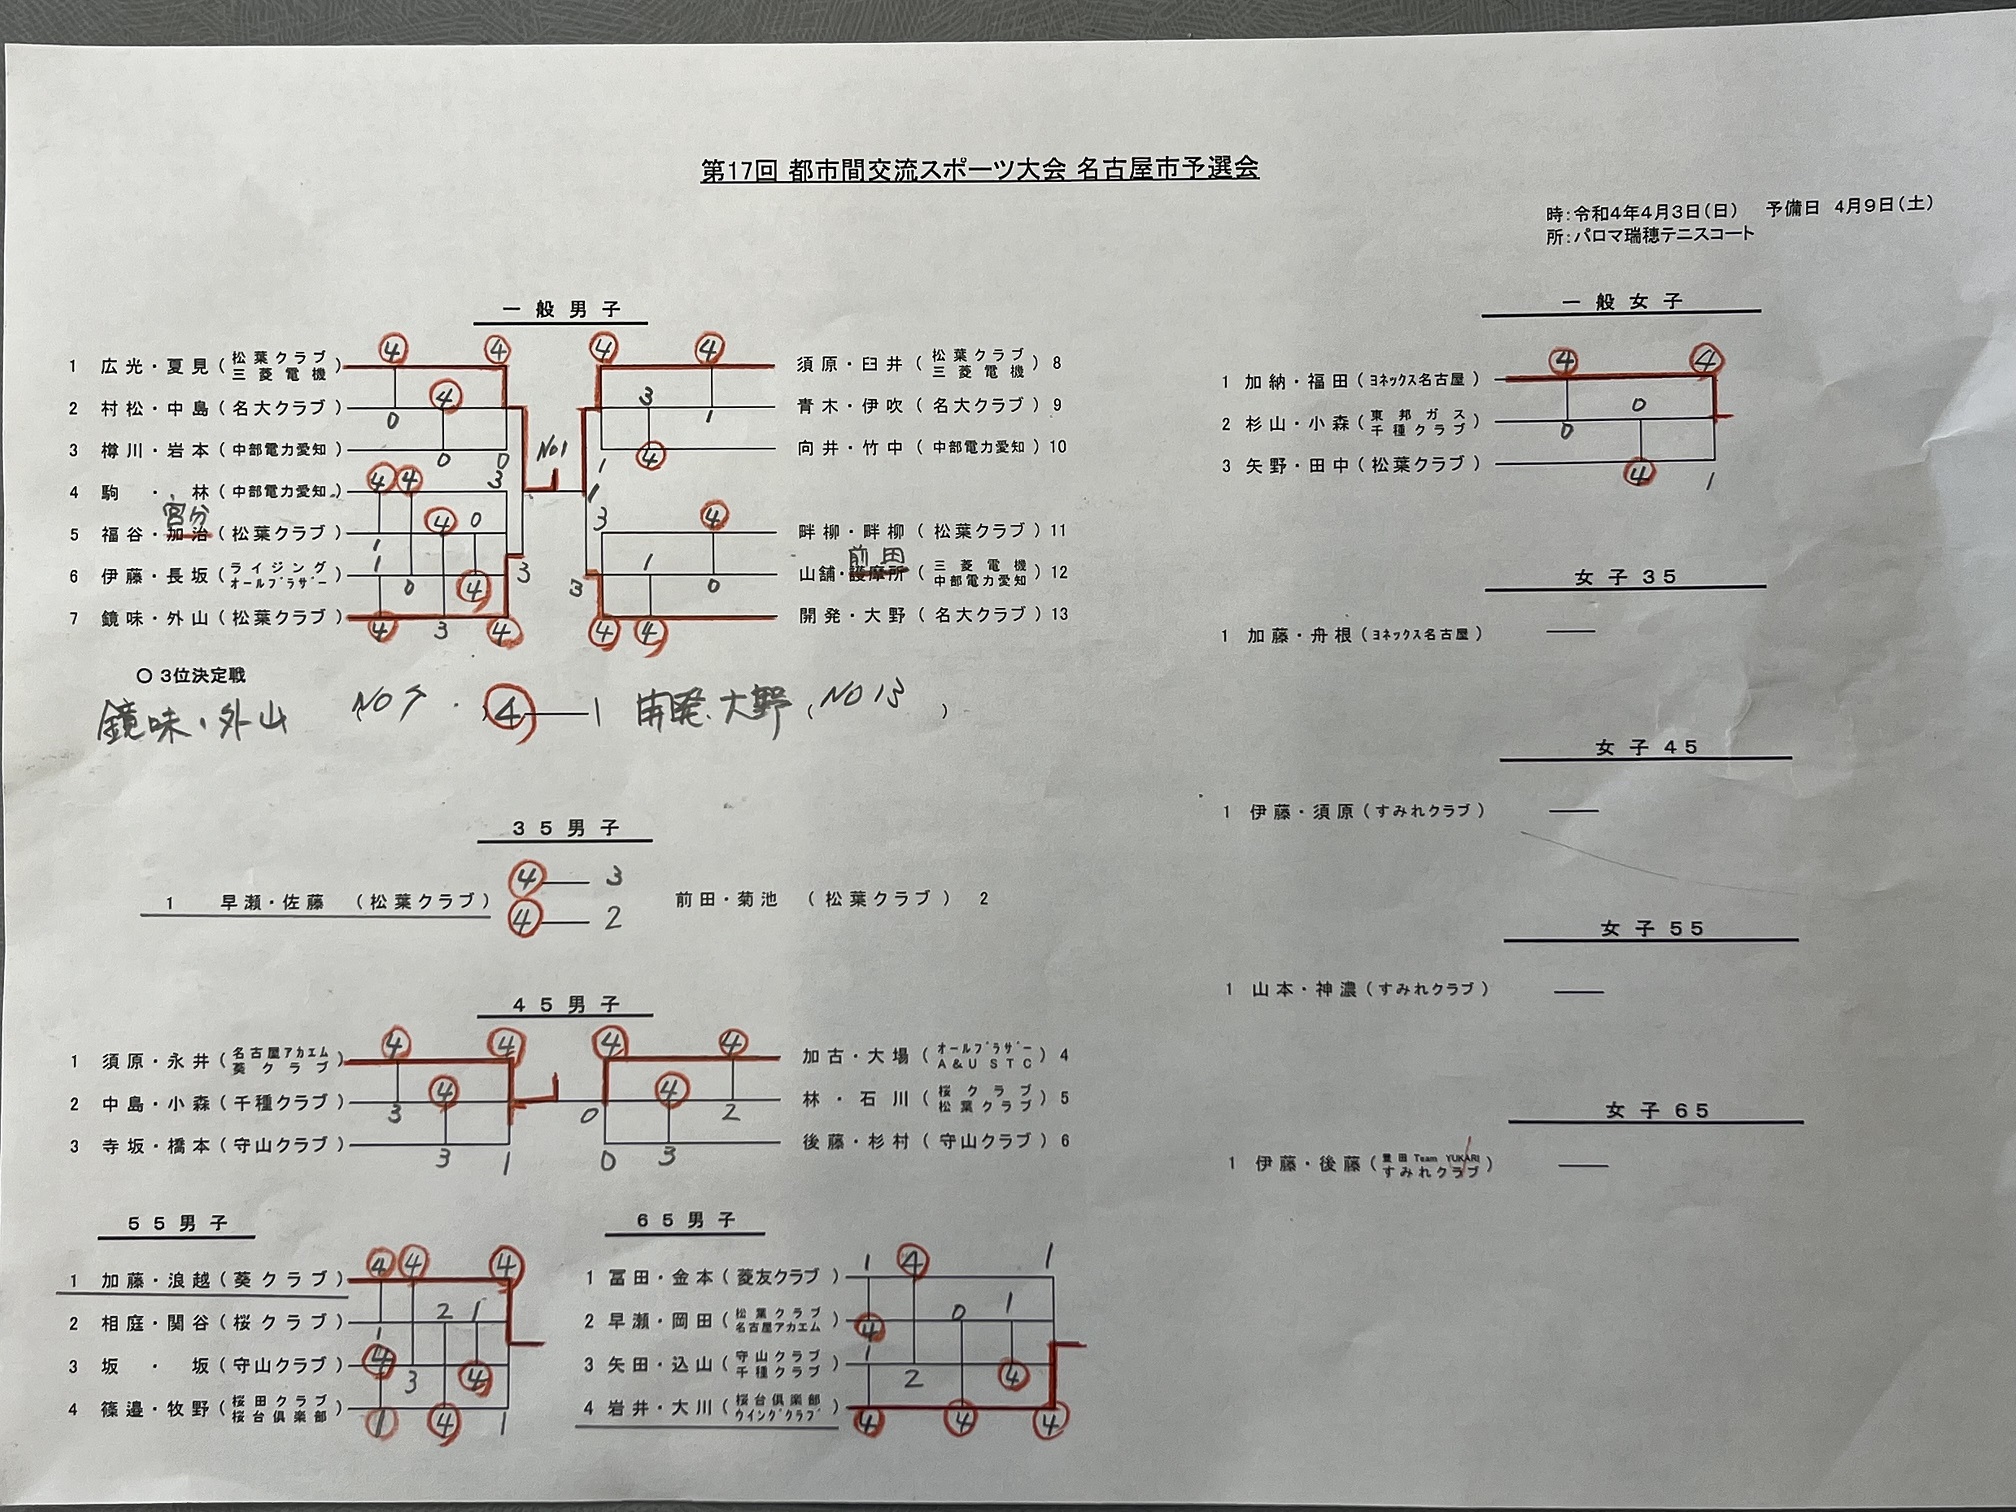 第17回 都市間交流スポーツ大会 名古屋市予選会
時:令和4年4月3日(日) 予備日 4月9日(土)
所:パロマ瑞穂テニスコート
一般男子
1 広光・夏見(松葉クラブ 三菱電機)
2 村松・中島(名大クラブ)
3 樽川・岩本(中部電力愛知)
4 駒・林(中部電力愛知)
宮分
5 福谷・加治(松葉クラブ)
6 伊藤・長坂(ライジング オールブラザー)
7 鏡味・外山(松葉クラブ)
4 4 4 4
4 3 1
0 0 0 No1 1 4
4 4 3 1
4 0 3 4
1 1 0 4 3 3 1 0
4 3 4 4 4
須原・臼井(松葉クラブ 三菱電機)8
青木・伊吹(名大クラブ)9
向井・竹中(中部電力愛知)10
畔柳・畔柳(松葉クラブ)11
前田
山舗・護摩所(三菱電機 中部電力愛知)12
開発・大野(名大クラブ)13
○3位決定戦
鏡味・外山 NO7 ④―1 開発・大野(NO13)
35男子
4 ― 3
1 早瀬・佐藤 (松葉クラブ) 前田・菊池 (松葉クラブ) 2
4 ― 2
45男子
1 須原・永井(名古屋アカエム 葵クラブ)
2 中島・小森(千種クラブ)
3 寺坂・橋本(守山クラブ)
4 4 4 4
3 4 0 4 2
3 1 0 3
加古・大場(オールブラザー A&USTC)4
林・石川(桜クラブ 松葉クラブ)5
後藤・杉村(守山クラブ)6
55男子
1 加藤・浪越(葵クラブ)
2 相庭・関谷(桜クラブ)
3 坂・坂(守山クラブ)
4 篠邉・牧野(桜田クラブ 桜台倶楽部)
4 4 4
1 2 1
4 3 4
1 4 1
65男子
1 冨田・金本(菱友クラブ)
2 早瀬・岡田(松葉クラブ 名古屋アカエム)
3 矢田・込山(守山クラブ 千種クラブ)
4 岩井・大川(桜台倶楽部 ウイングクラブ)
1 4 1
4 0 1
1 2 4
4 4 4
一般女子
1 加納・福田(ヨネックス名古屋)
2 杉山・小森(東邦ガス 千種クラブ)
3 矢野・田中(松葉クラブ)
4 4
0 0
4 1
女子35
1 加藤・舟根(ヨネックス名古屋) ―
女子45
1 伊藤・須原(すみれクラブ) ―
女子55
1 山本・神濃(すみれクラブ) ―
女子65
1 伊藤・後藤(豊田 Team YUKARI すみれクラブ) ―